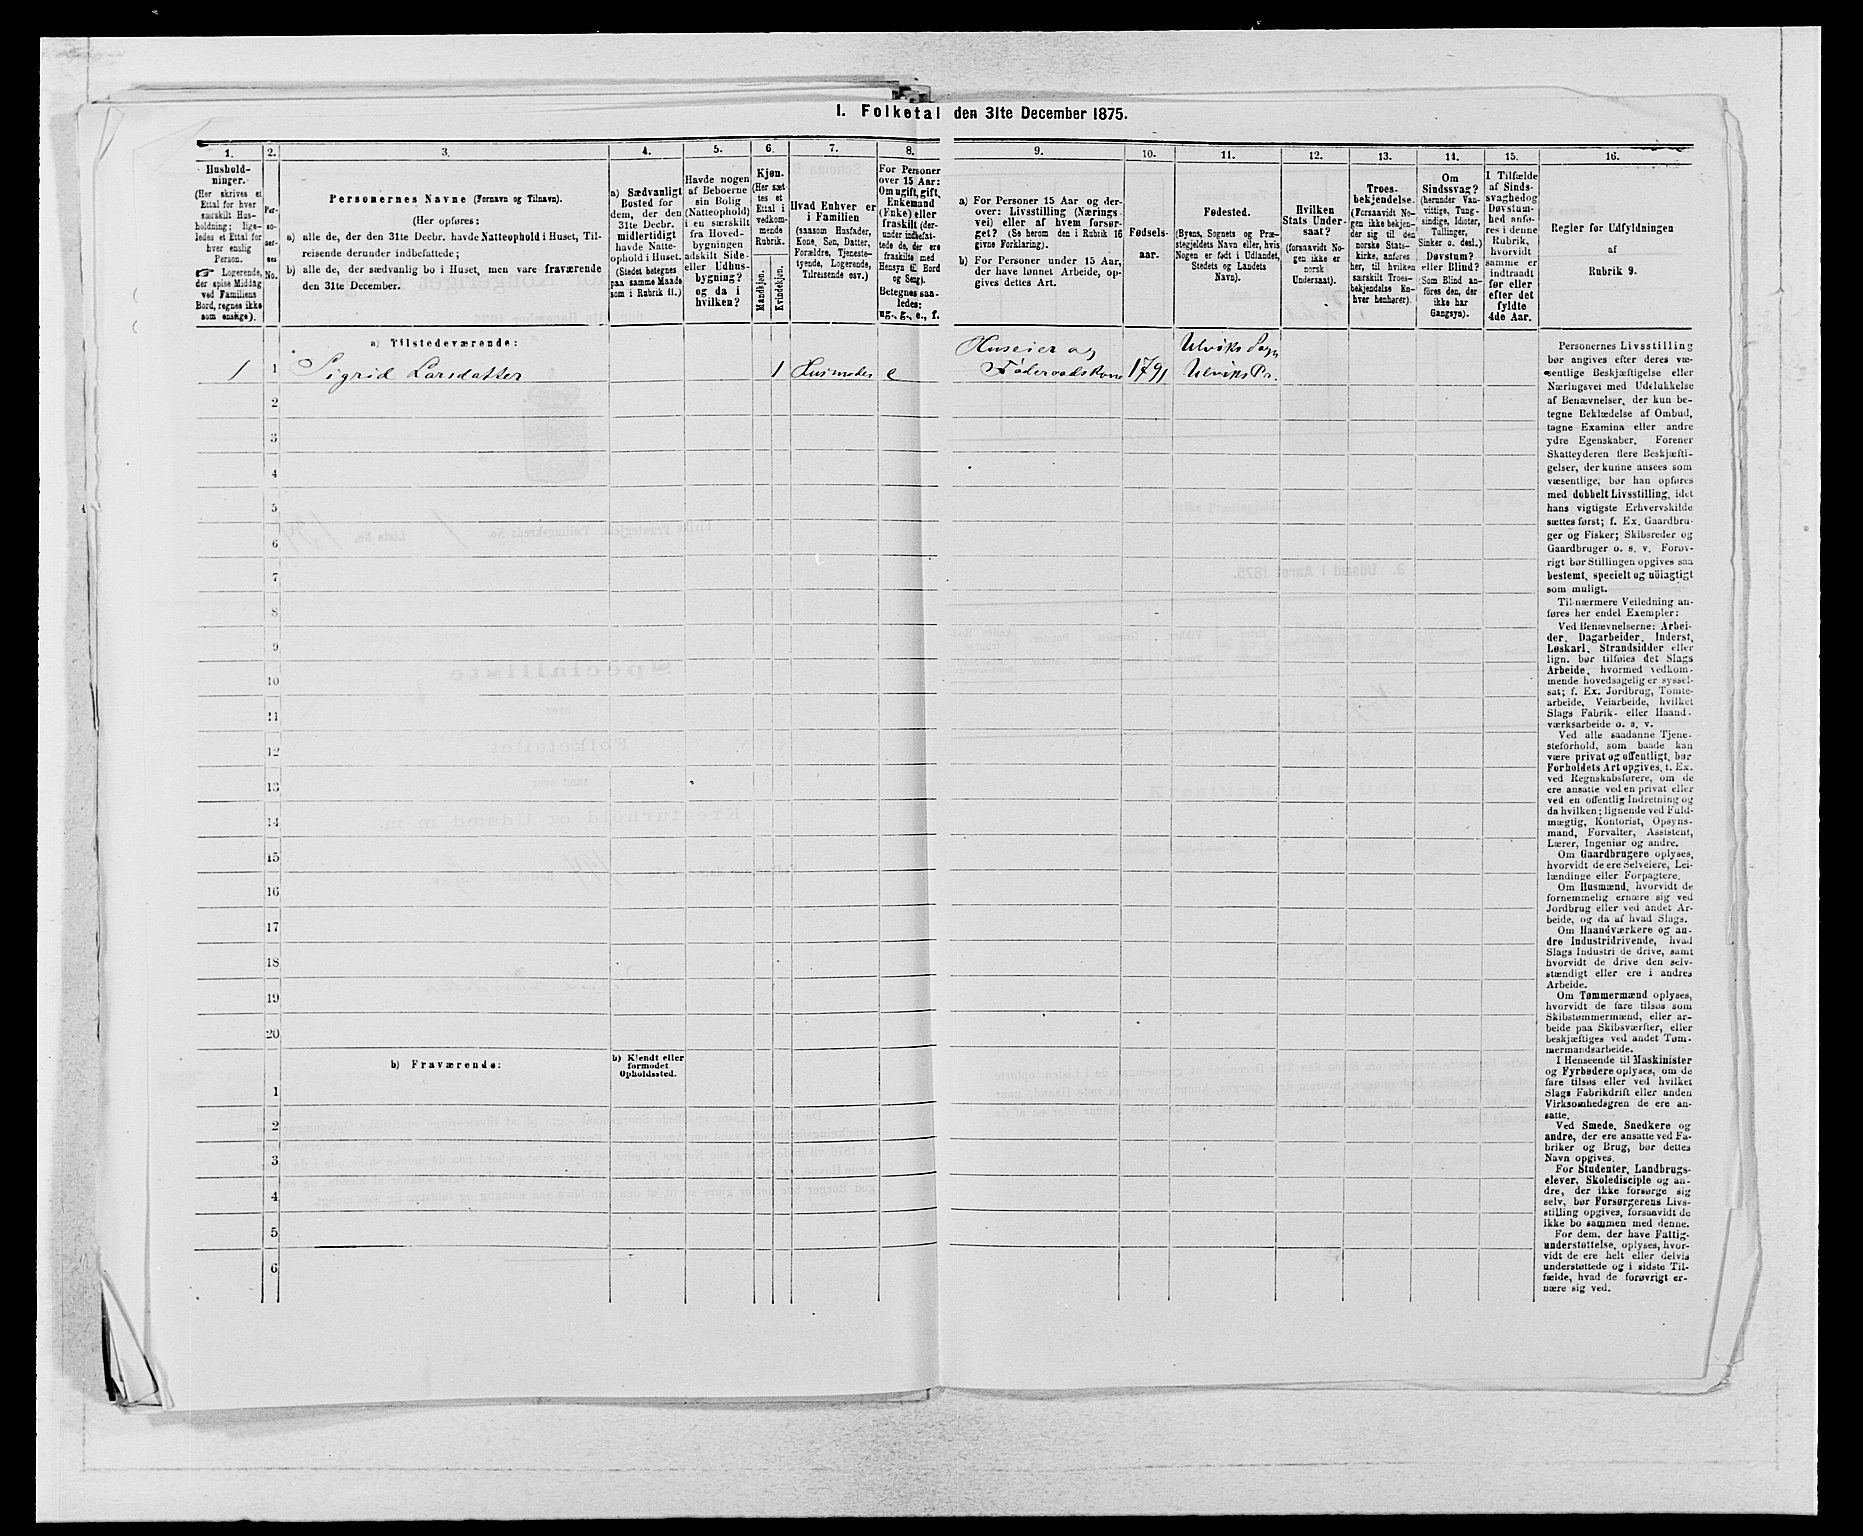 I. Folketal den 31te December 1875.
1. 2. 3. 4. 5. 6. 7. 8. 9. 10. 11. 12. 13. 14. 15. 16.
Hushold-
ninger.
(Her skrives et
Ettal for hver
særskilt Hus-
holdning; lige-
ledes et Ettal for
hver enslig
Person.
☞ Logerende,
der spise Middag
ved Familiens
Bord, regnes ikke
som enslige).
Per-
so-
ner-
nes
No.
Personernes Navne (Fornavn og Tilnavn).
(Her opføres:
a) alle de, der den 31te Decbr. havde Natteophold i Huset, Til-
reisende derunder indbefattede;
b) alle de, der sædvanlig bo i Huset, men vare fraværende
den 31te December.
a) Sædvanligt
Bosted for
dem, der den
31te Decbr.
midlertidigt
havde Natte-
ophold i Huset.
(Stedet betegnes
paa samme Maade
som i Rubrik 11.)
Havde nogen
af Beboerne
sin Bolig
(Natteophold)
i en særskilt
fra Hoved-
bygningen
adskilt Side-
eller Udhus-
bygning?
og da i
hvilken?
Kjøn.
(Her sæt-
tes et
Ettal i
vedkom-
mende
Rubrik.
Mandkjøn.
Kvindekjøn.
Hvad Enhver er
i Familien
(saasom Husfader,
Kone, Søn, Datter,
Forældre, Tjeneste-
tyende, Logerende,
Tilreisende osv.)
For Personer
over 15 Aar:
Om ugift, gift,
Enkemand
(Enke) eller
fraskilt (der-
under indbefat-
tede de, der ere
fraskilte med
Hensyn til Bord
og Seng).
Betegnes saa-
ledes:
ug., g., e., f.
a) For Personer 15 Aar og der-
over: Livsstilling (Nærings-
vei) eller af hvem forsør-
get? (Se herom den i Rubrik 16
givne Forklaring).
b) For Personer under 15 Aar,
der have lønnet Arbeide, op-
gives dettes Art.
Fødsels-
aar.
Fødested.
(Byens, Sognets og Præ-
stegjeldets Navn eller, hvis
Nogen er født i Udlandet,
Stedets og Landets
Navn).
Hvilken
Stats Under-
saat?
(forsaavidt No-
gen ikke er
norsk
Undersaat).
Troes-
bekjendelse.
(Forsaavidt No-
gen ikke bekjen-
der sig til den
norske Stats-
kirke, anføres
her, til hvilken
særskilt Troes-
bekjendelse En-
hver henhører).
Om
Sindssvag?
(herunder Van-
vittige, Tung-
sindige, Idioter,
Tullinger,
Sinker o. desl.)
Døvstum?
eller Blind?
(Som Blind an-
føres den, der
ikke har
Gangsyn).
I Tilfælde
af Sinds-
svaghed og
Døvstum-
hed anfø-
res i denne
Rubrik,
hvorvidt
samme er
indtraadt
før eller
efter det
fyldte
4de Aar.
Regler for Udfyldningen
af
Rubrik 9.
a) Tilstedeværende:
Huseier og Ulviks Sogn
1 1 Sigrid Larsdatter 1 Husmoder e Føderaadskone 1791 Ulviks Pr.
2
3
4
5
6
7
8
9
10
11
12
13
14
15
16
17
18
19
20
b) Fraværende:
b) Kjendt eller
formodet
Opholdssted.
1
2
3
4
5
6
Personernes Livsstilling
bør angives efter deres væ-
sentlige Beskjæftigelse eller
Næringsvei med Udelukkelse
af Benævnelser, der kun be-
tegne Beklædelse af Ombud,
tagne Examina eller andre
ydre Egenskaber. Forener
Skatteyderen flere Beskjæfti-
gelser, der kunne ansees som
væsentlige, bør han opføres
med dobbelt Livsstilling, idet
hans vigtigste Erhvervskilde
sættes først; f. Ex. Gaardbru-
ger og Fisker; Skibsreder og
Gaardbruger o. s. v. Forøv-
rigt bør Stillingen opgives saa
bestemt, specielt og nöiagtigt
som muligt.
Til nærmere Veiledning an-
føres her endel Exempler:
Ved Benævnelserne: Arbei-
der, Dagarbeider, Inderst,
Løskarl, Strandsidder eller
lign. bør tilføies det Slags
Arbeide, hvormed vedkom-
mende hovedsagelig er syssel-
sat; f. Ex. Jordbrug, Tomte-
arbeide, Veiarbeide, hvilket
Slags Fabrik- eller Haand-
værksarbeide o. s. v.
Ved alle saadanne Tjene-
steforhold, som baade kan
være privat og offentligt, bør
Forholdets Art opgives, t. Ex.
ved Regnskabsførere, om de
ere ansatte ved en privat eller
ved en offentlig Indretning og
da hvilken; lignende ved Fuld-
mægtig, Kontorist, Opsyns-
mand, Forvalter, Assistent,
Lærer, Ingeniør og andre.
Om Gaardbrugere oplyses,
hvorvidt de ere Selveiere, Lei-
lændinge eller Forpagtere.
Om Husmænd, hvorvidt de
fornemmelig ernære sig ved
Jordbrug eller ved andet Ar-
beide, og da af hvad Slags.
Om Haandværkere og an-
dre Industridrivende, hvad
Slags Industri de drive, samt
hvorvidt de drive den selv-
stændigt eller ere i andres
Arbeide.
Om Tømmermænd oplyses,
hvorvidt de fare tilsøs som
Skibstømmermænd, eller ar-
beide paa Skibsværfter, eller
beskjæftiges ved andet Tøm-
mermandsarbeide.
I Henseende til Maskinister
og Fyrbødere oplyses, om de
fare tilsøs eller ved hvilket
Slags Fabrikdrift eller anden
Virksomhedsgren de ere an-
satte.
Ved Smede, Snedkere og
andre, der ere ansatte ved Fa-
briker og Brug, bør dettes
Navn opgives.
For Studenter, Landbrugs-
elever, Skoledisciple og an-
dre, der ikke forsørge sig
selv, bør Forsørgerens Livs-
stilling opgives, forsaavidt de
ikke bo sammen med denne.
For dem, der have Fattig-
understøttelse, oplyses, hvor-
vidt de ere helt eller delvis
understøttede og i sidste Til-
fælde, hvad de forøvrigt er-
nære sig ved.